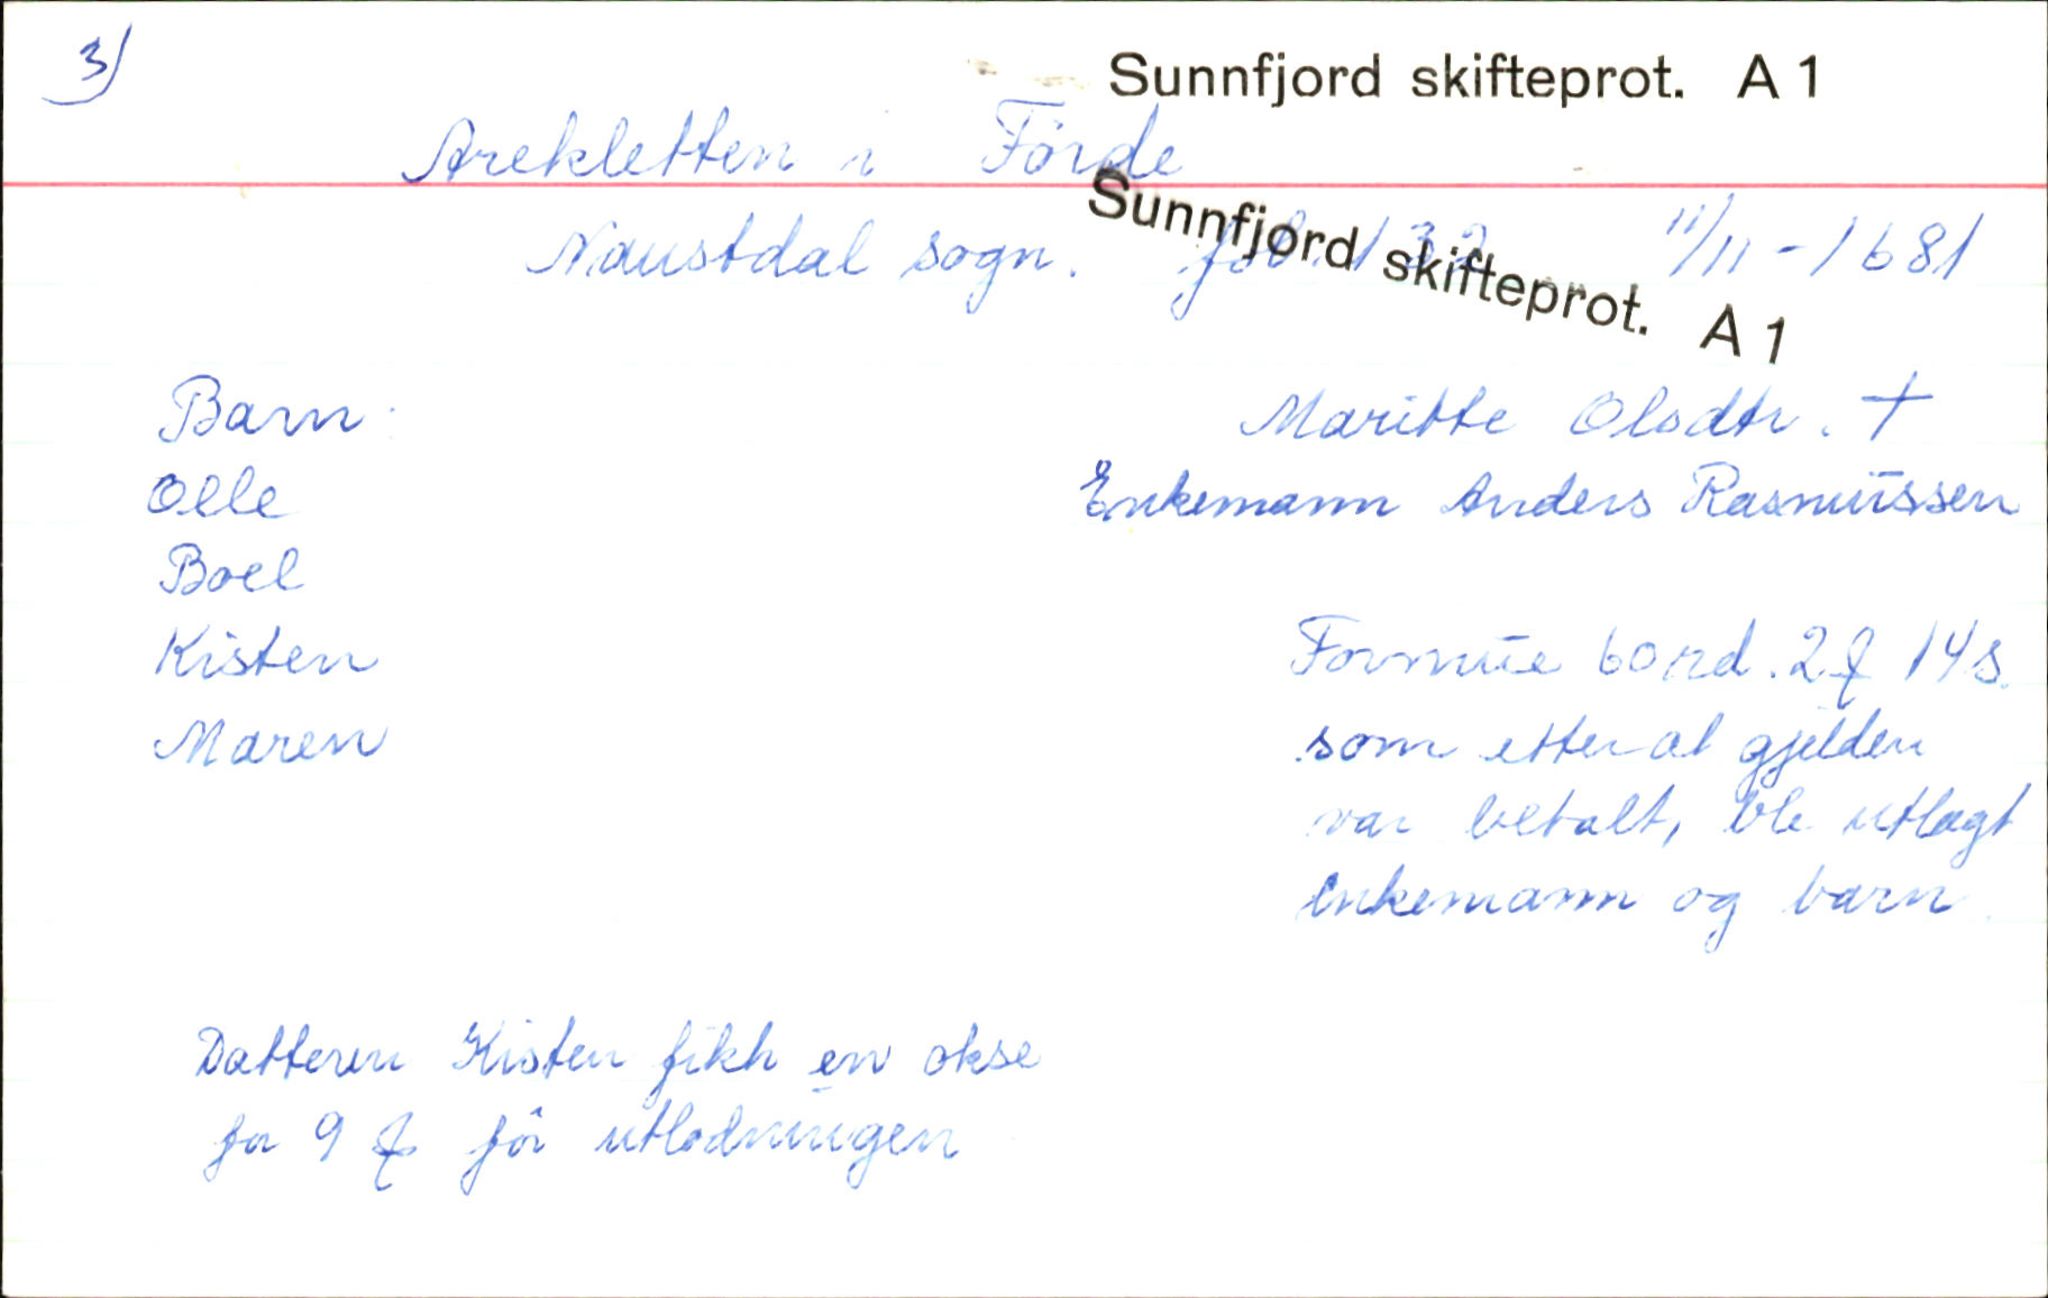 3)
Sunnfjord skifteprot. A 1
Arekletten i Förde
Sunnfjord skifteprot. A 1
Naustdal sogn. fol. 132 11/11-1681
Barn:
Olle
Boel
Kisten
Maren
Maritte Olsdtr. +
Enkemann Anders Rasmussen
Formue 60 rd. 2 14 s.
som etter at gjelden
var betalt, ble utlagt
enkemann og barn
Datteren Kisten fikk en okse
for 9 för utlodningen